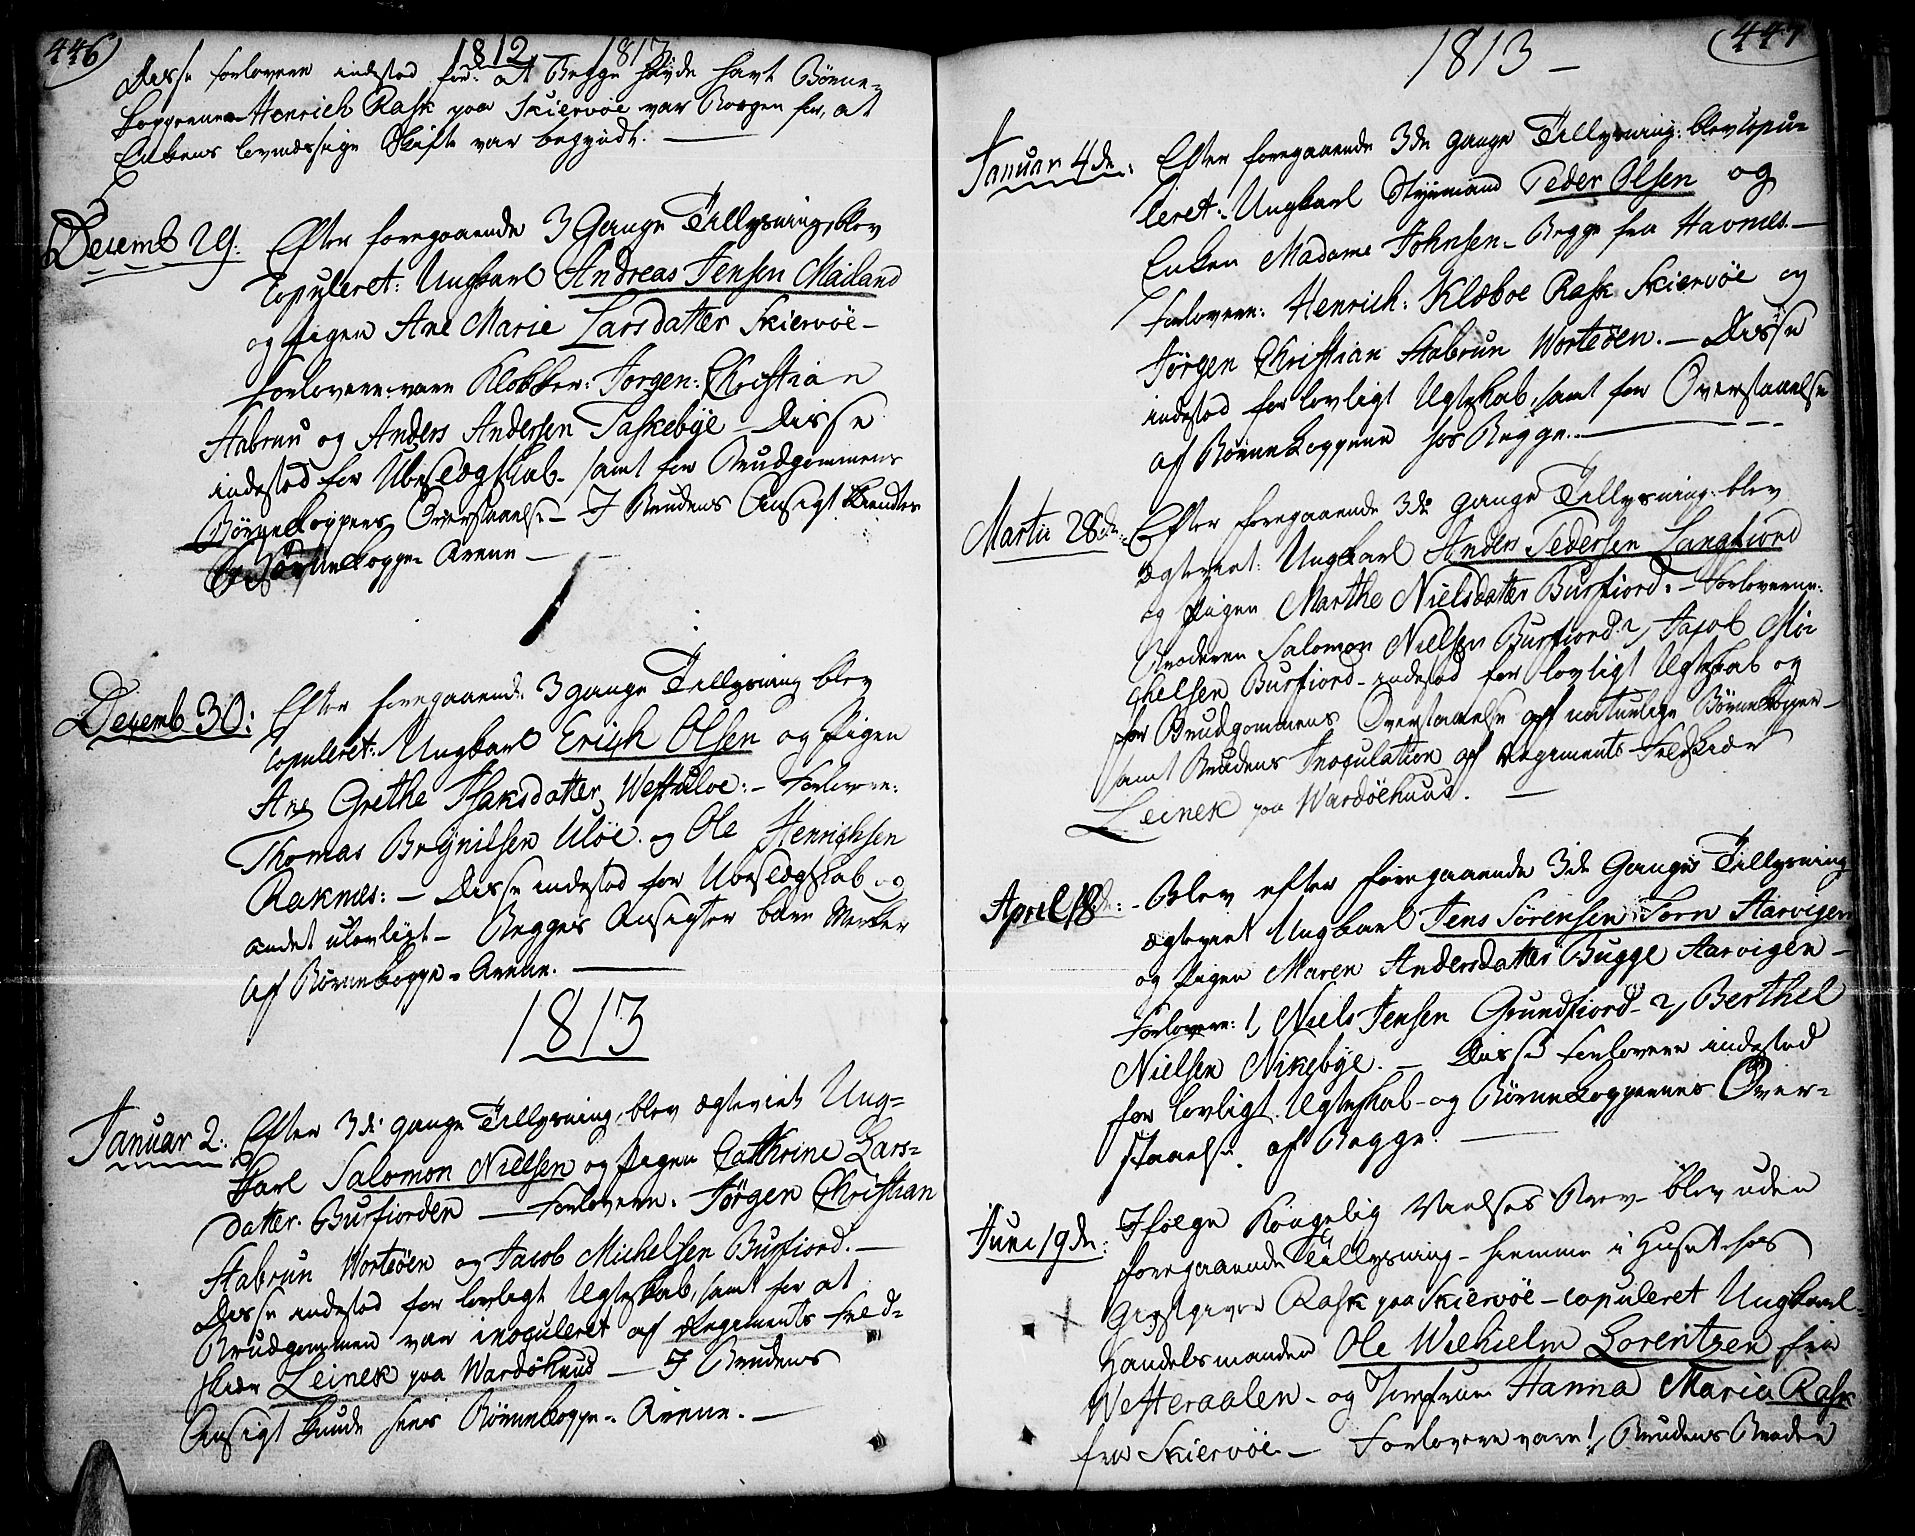 446)
1812 1813
Disse forlovere indestod for: at Begge havde havt Børne-
koppene Henrich Rask paa Skiervöe var Borgen for, at
Enkens lovmæssige Skifte var begyndt.
Decemb 29. Efter foregaaende 3 Gange Tillysning, blev
Copuleret: Ungkarl Andreas Jensen Mailand
og Pigen Ane Marie Larsdatter Skiervöe -
Forlovere: vare Klokker: Jorgen: Christian
Stabrun og Anders Andersen Taskebye - Disse
indestod for Ubeslægtskab - samt for Brudgommens
Børnekoppers Overstaaelse - I Brudens Ansigt kiendtes
Børnekoppe Arene -
Decemb 30: Efter foregaaende 3 gange Tillysning blev
Copuleret: Ungkarl Erich Olsen og Pigen
Ane Grethe Isaksdatter, Westuløe: - Forlovere:
Thomas Brynilsen Uløe. og Ole Henrichsen
Raknes: - Disse indestod for Ubeslægtskab og
andet ulovligt - Begges Ansigter bare Merker
af Børnekoppe - Arene.
1813
Januar 2. Efter 3de gange Tillysning, blev ægteviet Ung-
karl Salomon Nielsen og Pigen Cathrine Lars-
datter Burfiorden - Forlovere. Jørgen Christian
Stabrun Worteöen og Jacob Michelsen Burfiord. -
Disse indestod for lovligt Ægteskab, samt for at
Brudgommen var inoculeret af Regiments Feld-
skiær Leinek paa Wardöehuus - I Brudens
Ansigt kunde sees Børnekoppe - Arene. -
447
1813 -
Januar 4de: Efter foregaaende 3de gange Tillysning: blev Copu-
leret: Ungkarl Styrmand Peder Olsen og
Enken Madame Johnsen - Begge fra Havnes. -
Forlovere: Henrich: Klæboe Rask Skiervöe og
Jørgen Christian Stabrun Worteöen. - Disse
indestod for lovligt Ægteskab, samt for Overstaaelse
af Børnekoppene hos Begge. -
Martii 28de: Efter foregaaende 3de gange Tillysning blev
ægteviet: Ungkarl Anders Pedersen Langfiord
og Pigen Marthe Nielsdatter Burfiord. - Forloverne:
Broderen Salomon Nielsen Burfiord 2, Jacob Mi-
chelsen Burfiord - indestod for lovligt Ægteskab og
for Brudgommens Overstaaelse af naturlige Børnekopper -
samt Brudens Inoculation af Regiments Feldskiær
Leinek paa Wardöehuus. -
April 18de: - Blev efter foregaaende 3de Gange Tillysning
ægteviet Ungkarl Jens Sörensen Torn Aarvigen
og Pigen Maren Andersdatter Bugge Aarvigen -
Forlovere: 1, Niels Jensen Grundfiord - 2, Berthel
Nielsen Nikebye. - Disse forlovere indestod
for lovligt Ægteskab - og Børnekoppenes Over-
staaelse af Begge.
Juni 19de: Ifølge Kongelig Vielses Brev - blev uden
foregaaende Tillysning - hiemme i Huset hos
Giestgiver Rask paa Skiervöe - copuleret Ungkarl
Handelsmanden Ole Wilhielm Lorentzen fra
Westeraalen - og Jomfrue Hanna Maria Rask
fra Skiervöe - Forlovere vare 1, Brudens Broder